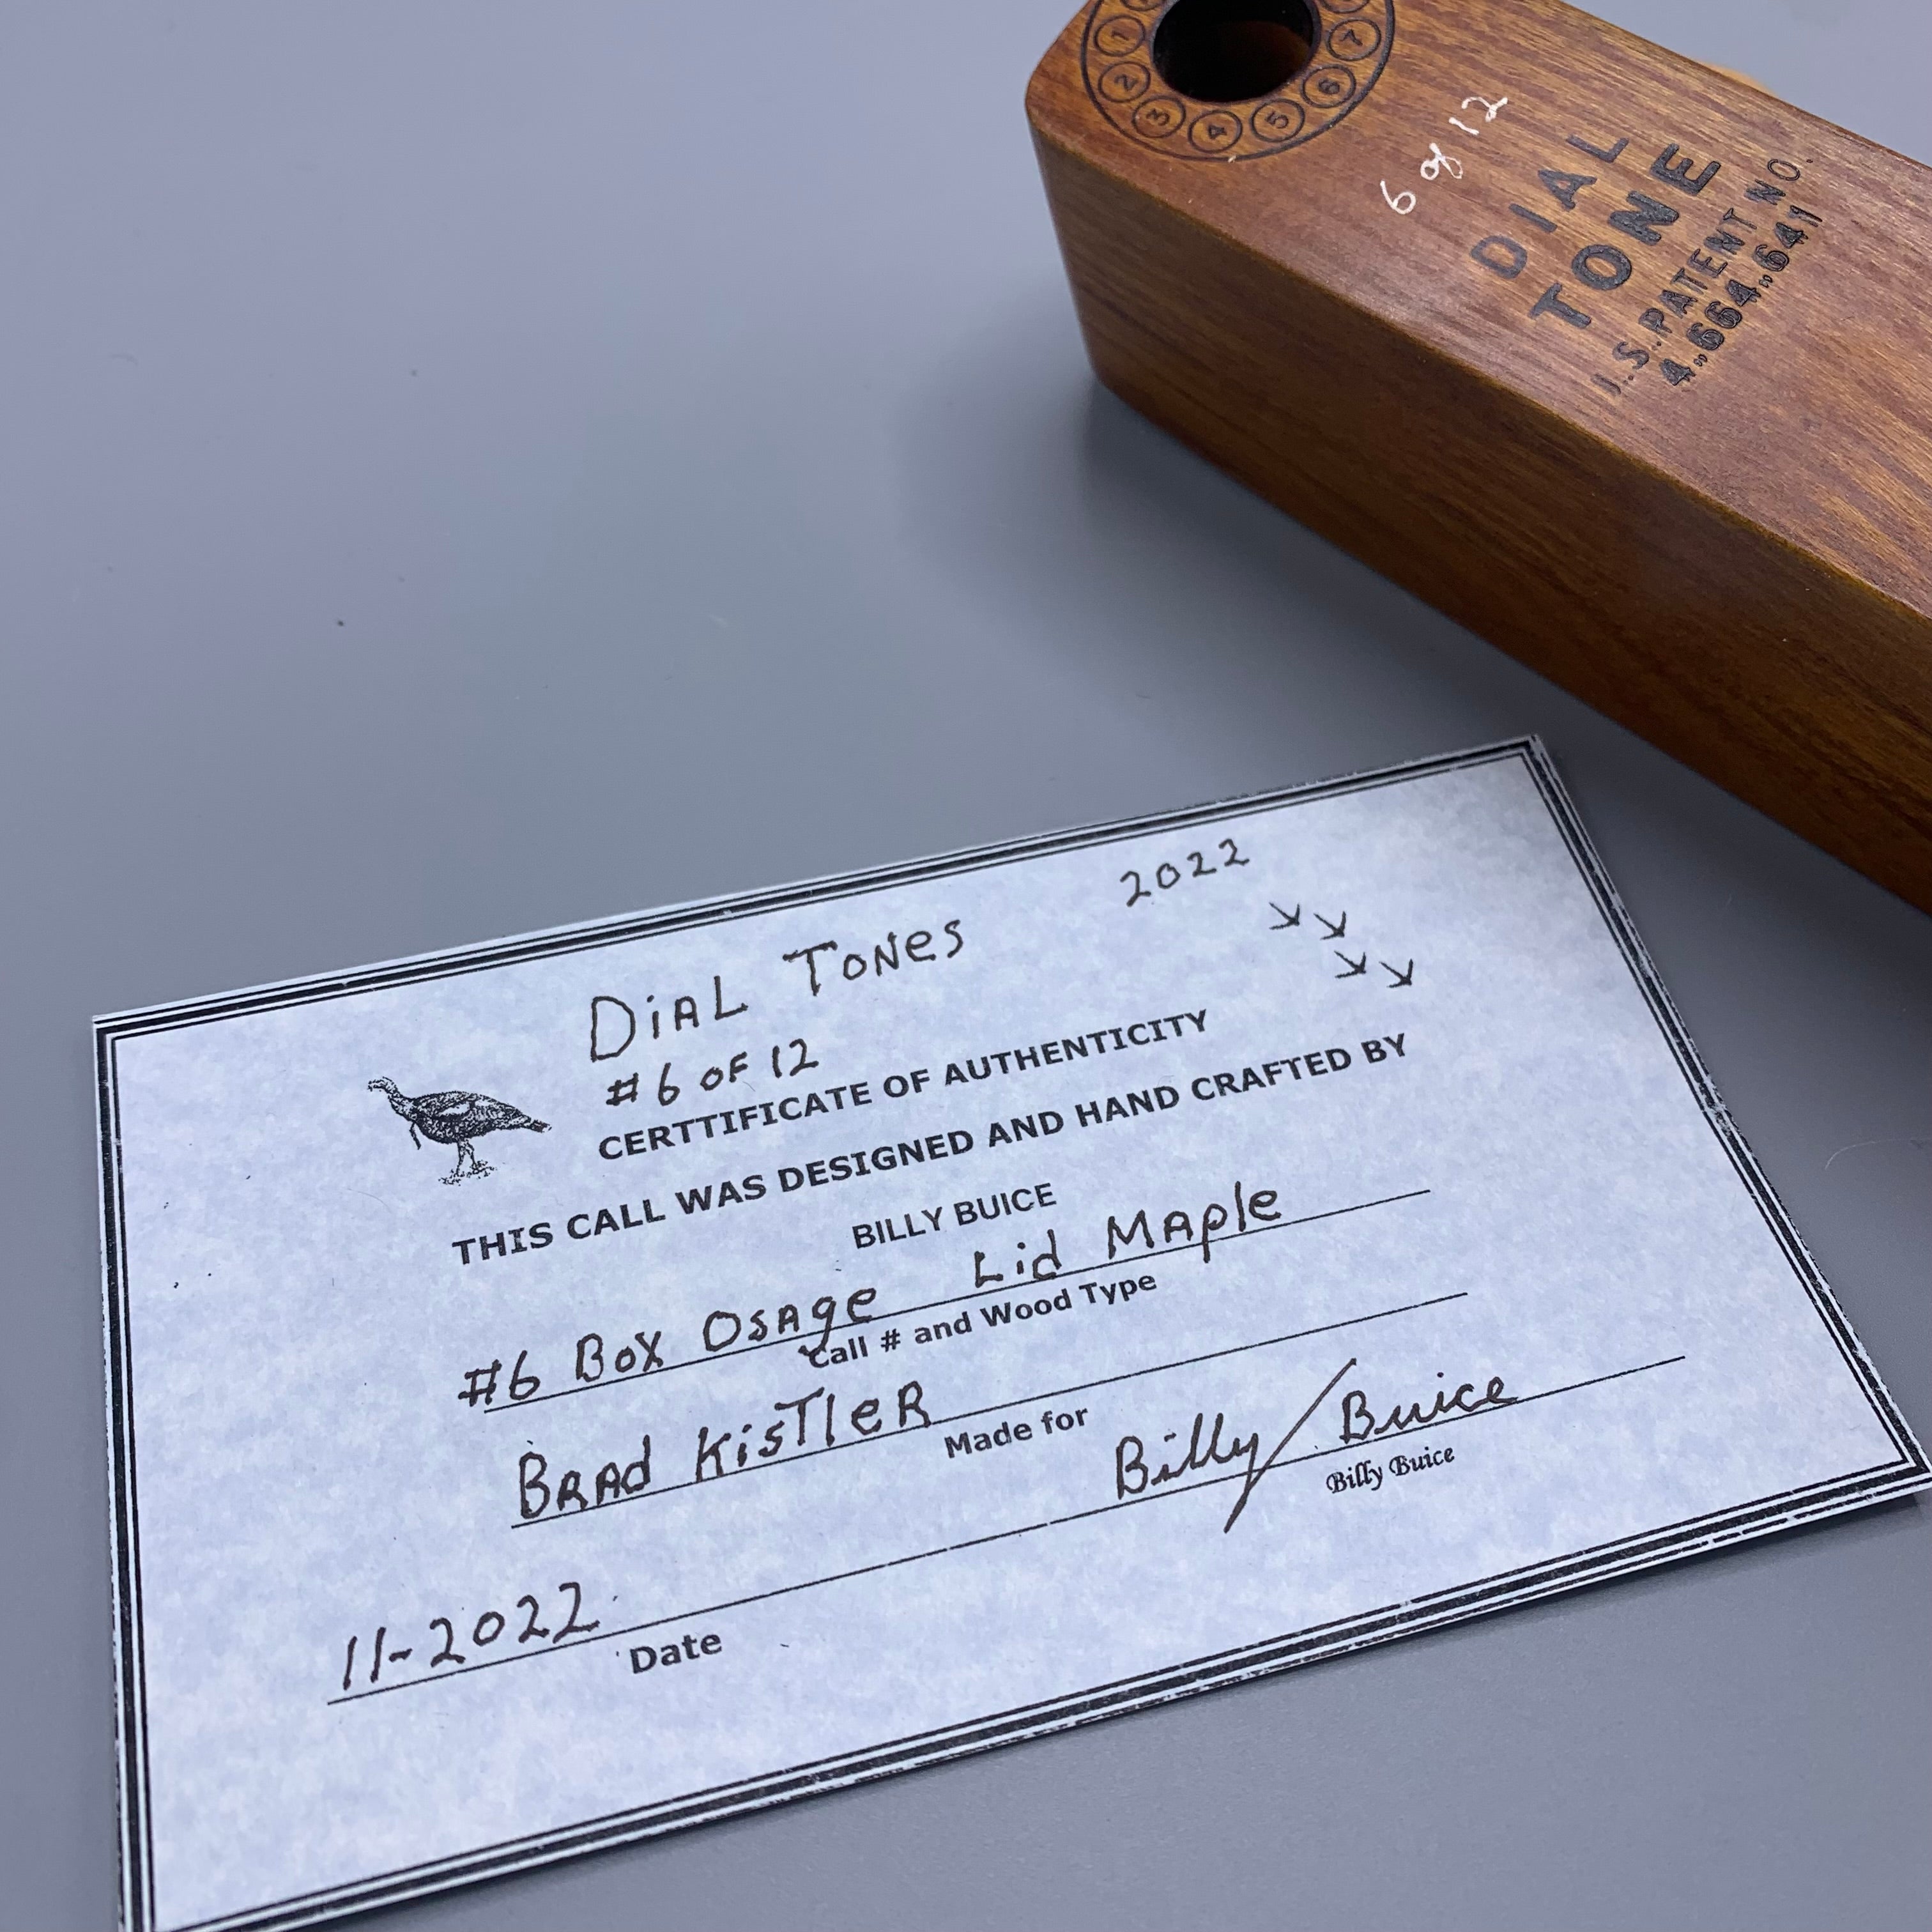 1 2 3 4 5 6 7
6 of 12
DIAL
TONE
U.S. PATENT NO.
4,,664,,641
2022
DiAL TONES
#6 OF 12
CERTTIFICATE OF AUTHENTICITY
THIS CALL WAS DESIGNED AND HAND CRAFTED BY
BILLY BUICE
#6 Box OsAge Lid MAple
Call # and Wood Type
BRAd KisTleR
Made for
Billy Buice
Billy Buice
11-2022
Date